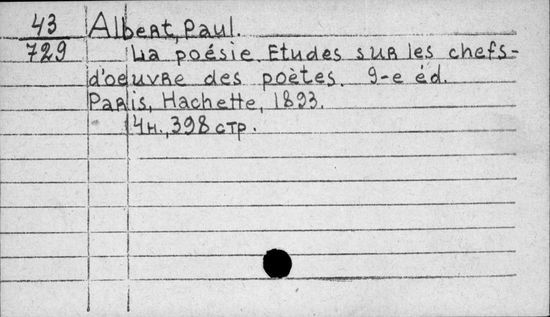 43
729
Albert, Paul.
La poésie. Etudes sur les chefs-
d'oeuvre des poètes. 9-e éd.
Paris, Hachette, 1893.
4н., 398 стр.